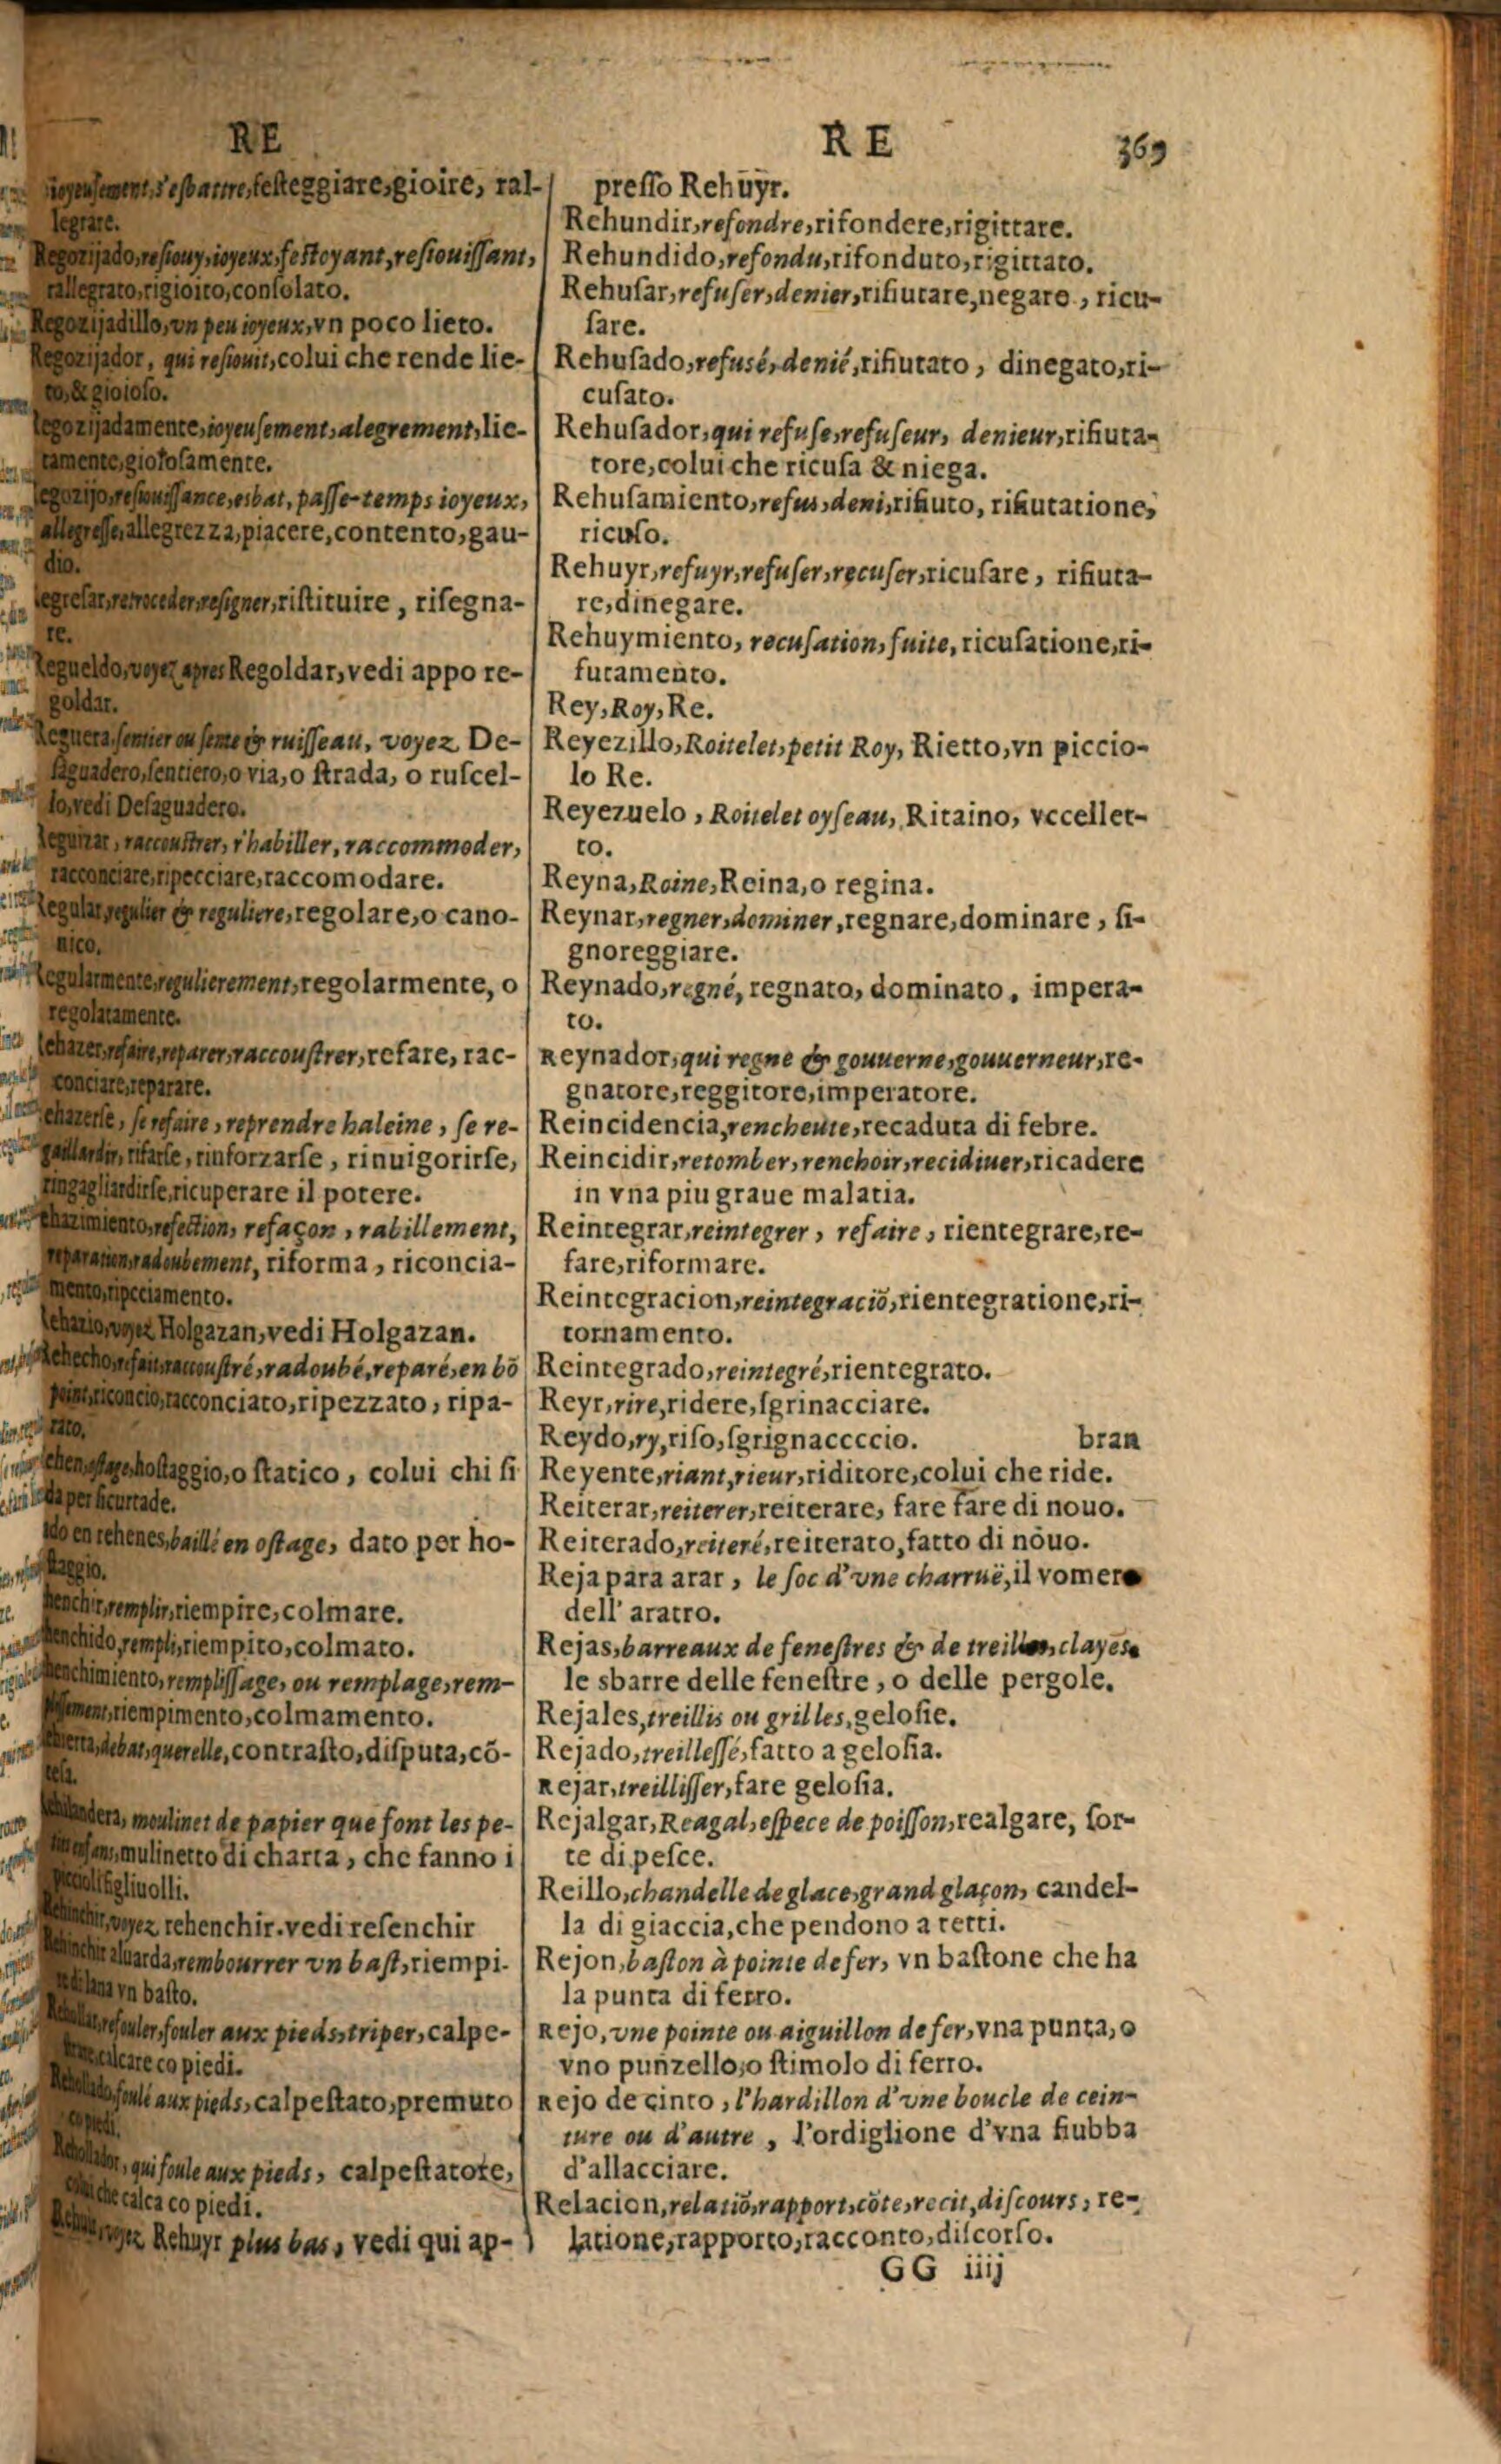 RE
ioyeusement, s'esbattre, festeggiare, gioire, ral-
legrare.
Regozijado, resiouy, ioyeux, festoyant, resiouissant,
rallegrato, rigioito, consolato.
Regozijadillo, vn peu ioyeux, vn poco lieto.
Regozijador, qui resiouit, colui che rende lie-
to, & gioioso.
egozijadamente, ioyeusement, alegrement, lie-
tamente, gioiosamente.
egozijo, resiouissance, esbat, passe-temps ioyeux,
allegresse, allegrezza, piacere, contento, gau-
dio.
egresar, retroceder, resigner, ristituire, risegna-
re.
Regueldo, voyez apres Regoldar, vedi appo re-
goldar.
Reguera, sentier ou sente & ruisseau, voyez De-
saguadero, sentiero, o via, o strada, o ruscel-
lo, vedi Desaguadero.
raccoustrer, r'habiller, raccommoder,
racconciare, ripecciare, raccomodare.
Regular, regulier & reguliere, regolare, o cano-
nico.
Regularmente, regulierement, regolarmente, o
regolatamente.
ehazer, refaire, reparer, raccoustrer, refare, rac-
conciare, reparare.
ehazerse, se refaire, reprendre haleine, se re-
gaillardir, rifarse, rinforzarse, rinuigorirse,
ringagliardirse, ricuperare il potere.
ehazimiento, refection, refaçon, rabillement,
reparation, radoubement, riforma, riconcia-
mento, ripecciamento.
ehazio, voyez Holgazan, vedi Holgazan.
ehecho, refait, raccoustré, radoubé, reparé, en bõ
point, riconcio, racconciato, ripezzato, ripa-
rato.
ehen, ostage, hostaggio, o statico, colui chi si
da per sicurtade.
ido en rehenes, baillé en ostage, dato per ho-
staggio.
henchir, remplir, riempire, colmare.
henchido, rempli, riempito, colmato.
henchimiento, remplissage, ou remplage, rem-
plissement, riempimento, colmamento.
debat, querelle, contrasto, disputa, cõ-
tesa.
moulinet de papier que font les pe-
mulinetto di charta, che fanno i
piccioli figliuolli.
voyez rehenchir. vedi resenchir
aluarda, rembourrer vn bast, riempi-
lana vn basto.
refouler, fouler aux pieds, triper, calpe-
calcare co piedi.
foulé aux pieds, calpestato, premuto
piedi.
Rehollador, qui foule aux pieds, calpestatore,
che calca co piedi.
voyez Rehuyr plus bas, vedi qui ap-
RE 369
presso Rehuyr.
Rehundir, refondre, rifondere, rigittare.
Rehundido, refondu, rifonduto, rigittato.
Rehusar, refuser, denier, rifiutare, negare, ricu-
sare.
Rehusado, refusé, denié, rifiutato, dinegato, ri-
cusato.
Rehusador, qui refuse, refuseur, denieur, rifiuta-
tore, colui che ricusa & niega.
Rehusamiento, refus, deni, rifiuto, rifiutatione,
ricuso.
Rehuyr, refuyr, refuser, recuser, ricusare, rifiuta-
re, dinegare.
Rehuymiento, recusation, fuite, ricusatione, ri-
futamento.
Rey, Roy, Re.
Reyezillo, Roitelet, petit Roy, Rietto, vn piccio-
lo Re.
Reyezuelo, Roitelet oyseau, Ritaino, vccellet-
to.
Reyna, Roine, Reina, o regina.
Reynar, regner, dominer, regnare, dominare, si-
gnoreggiare.
Reynado, regné, regnato, dominato, impera-
to.
Reynador, qui regne & gouuerne, gouuerneur, re-
gnatore, reggitore, imperatore.
Reincidencia, rencheute, recaduta di febre.
Reincidir, retomber, renchoir, recidiuer, ricadere
in vna piu graue malatia.
Reintegrar, reintegrer, refaire, rientegrare, re-
fare, riformare.
Reintegracion, reintegraciõ, rientegratione, ri-
tornamento.
Reintegrado, reintegré, rientegrato.
Reyr, rire, ridere, sgrinacciare.
Reydo, ry, riso, sgrignaccccio. bran
Reyente, riant, rieur, riditore, colui che ride.
Reiterar, reiterer, reiterare, fare fare di nouo.
Reiterado, reiteré, reiterato, fatto di nouo.
Reja para arar, le soc d'vne charruë, il vomero
dell' aratro.
Rejas, barreaux de fenestres & de treilles, clayes,
le sbarre delle fenestre, o delle pergole.
Rejales, treillis ou grilles, gelosie.
Rejado, treillessé, fatto a gelosia.
Rejar, treillisser, fare gelosia.
Rejalgar, Reagal, espece de poisson, realgare, sor-
te di pesce.
Reillo, chandelle de glace, grand glaçon, candel-
la di giaccia, che pendono a tetti.
Rejon, baston à pointe de fer, vn bastone che ha
la punta di ferro.
Rejo, vne pointe ou aiguillon de fer, vna punta, o
vno punzello, o stimolo di ferro.
Rejo de cinto, l'hardillon d'vne boucle de cein-
ture ou d'autre, l'ordiglione d'vna fiubba
d'allacciare.
Relacion, relatiõ, rapport, cõte, recit, discours, re-
latione, rapporto, racconto, discorso.
GG iiij